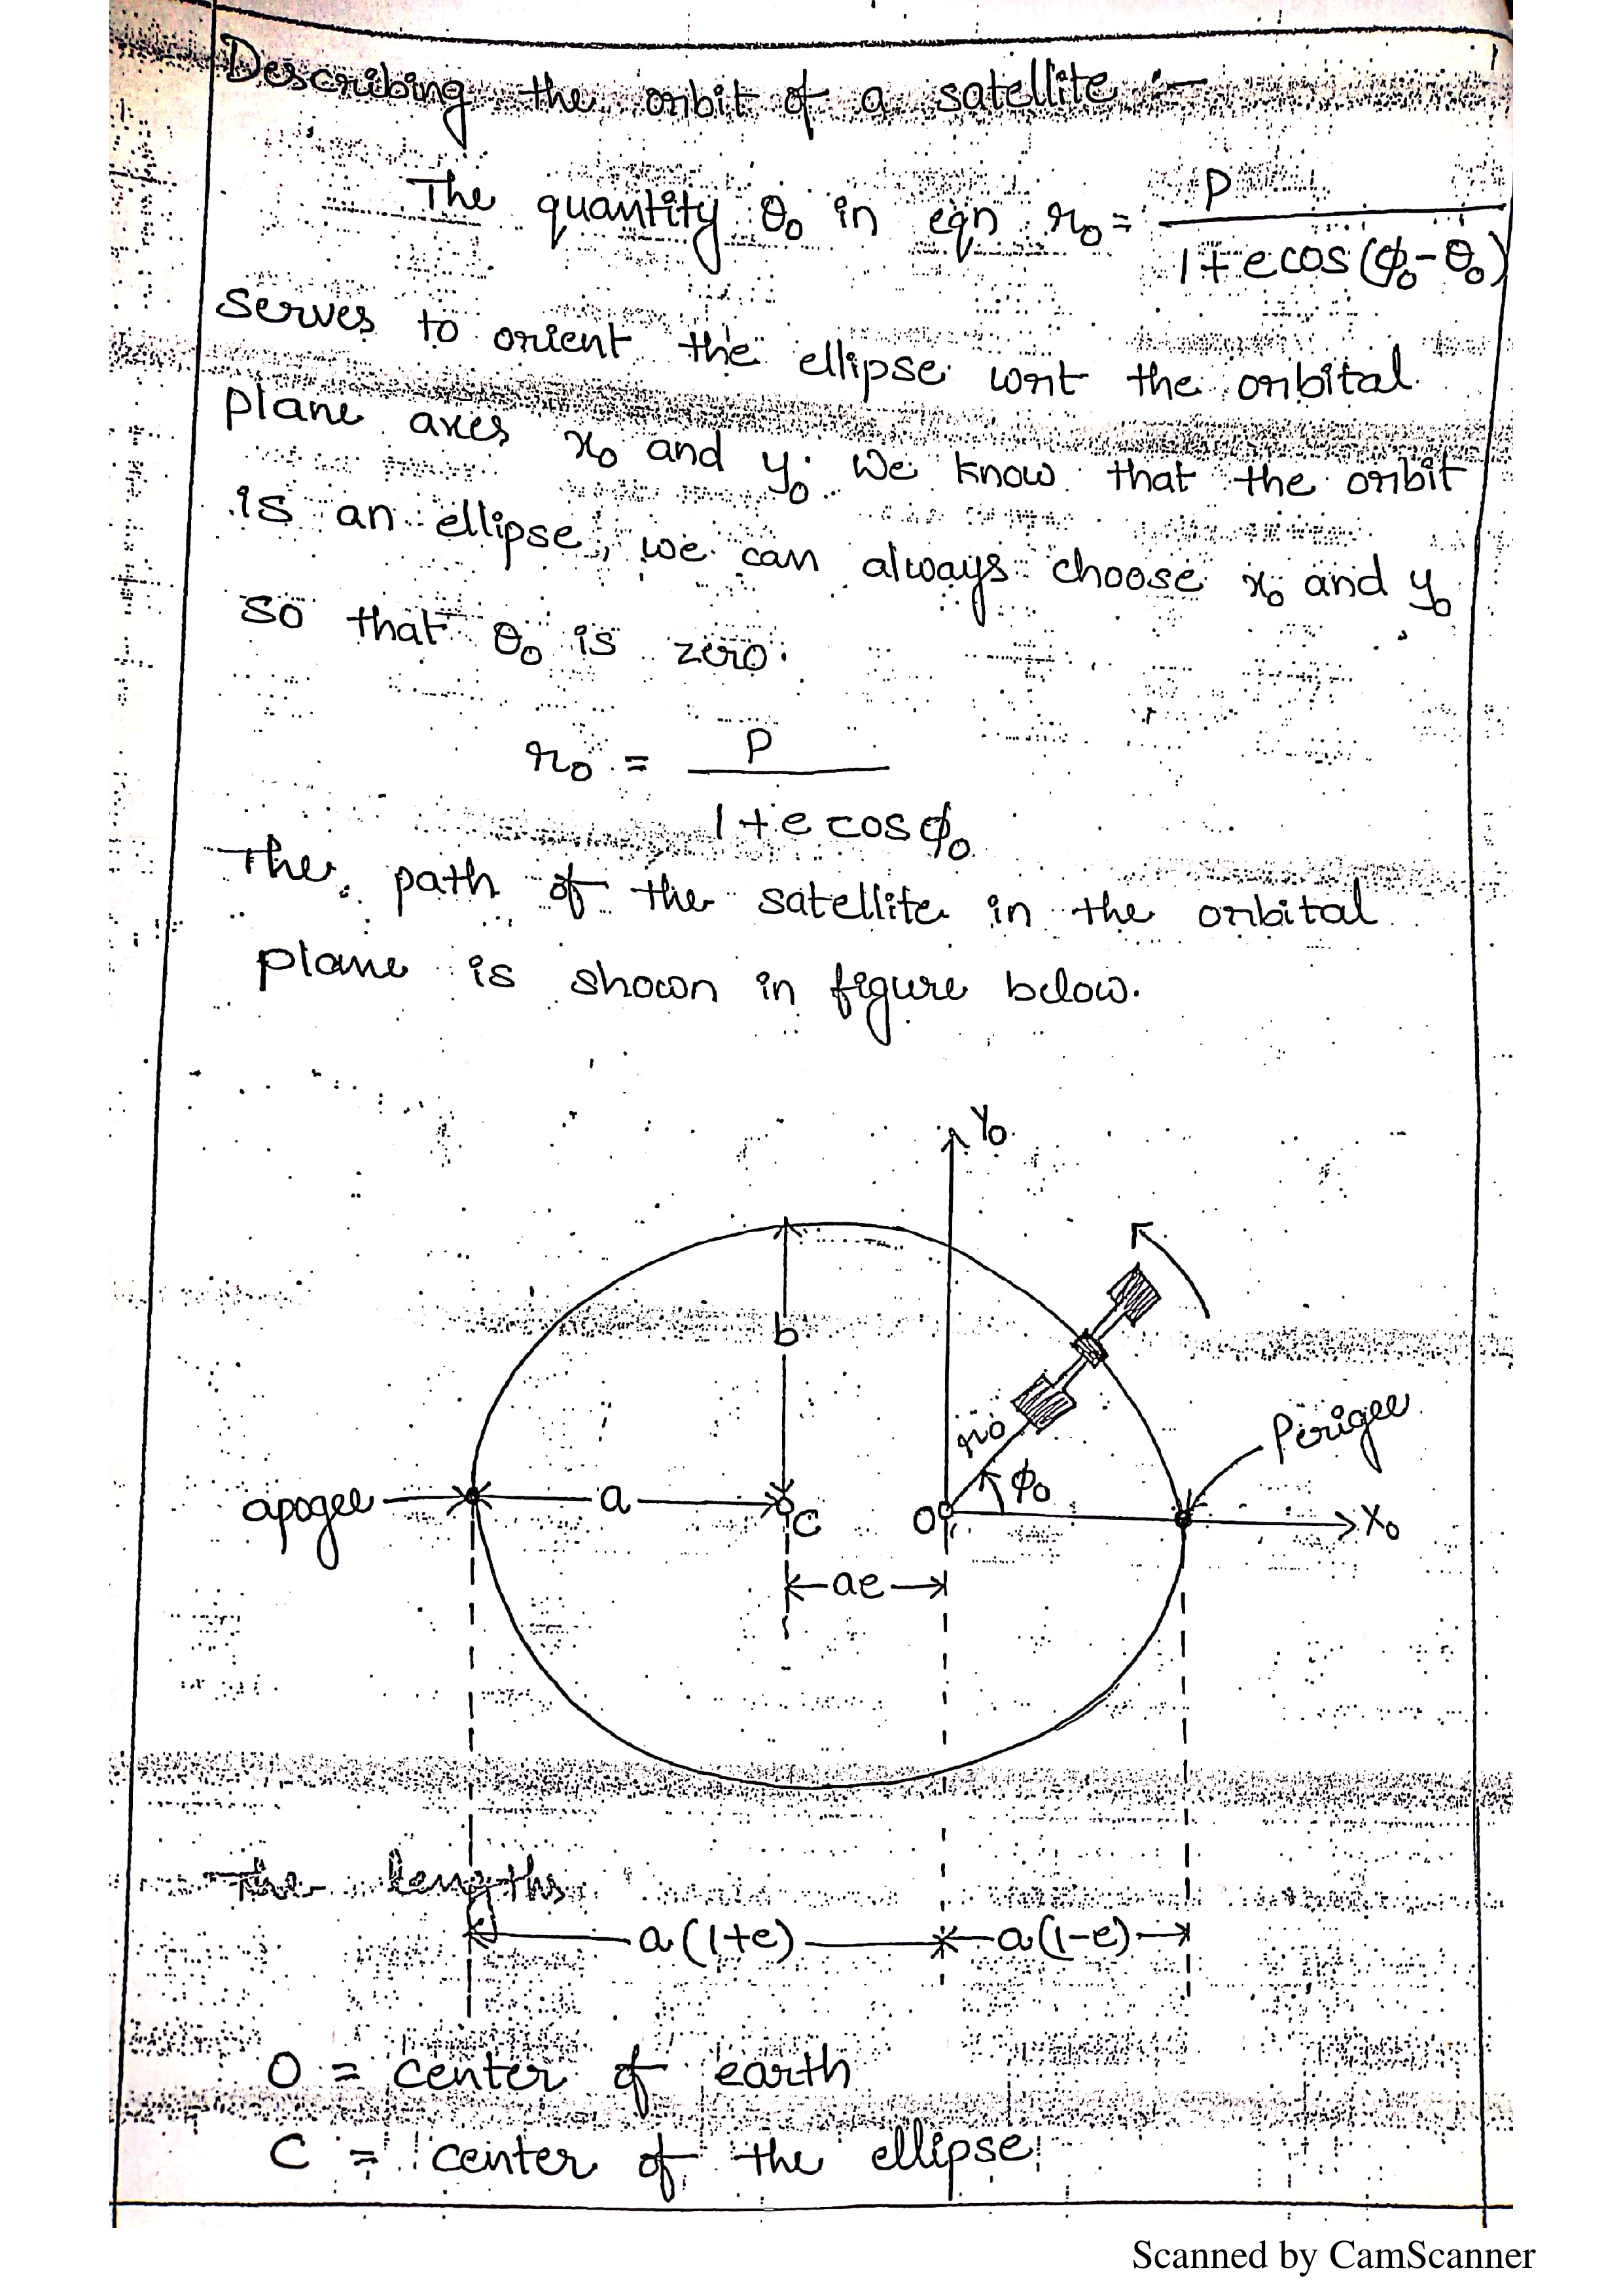 Describing the orbit of a satellite :-
The quantity θ₀ in eqn r₀ = P / 1+e cos(ϕ₀-θ₀)
serves to orient the ellipse wrt the orbital
plane axes x₀ and y₀. We know that the orbit
is an ellipse, we can always choose x₀ and y₀
so that θ₀ is zero.
r₀ = P / 1+e cosϕ₀
The path of the satellite in the orbital
plane is shown in figure below.
Y₀
b
r₀
Perigee
apogee
a
C
O
ϕ₀
X₀
ae
The lengths
a(1+e)
a(1-e)
O = center of earth
C = center of the ellipse
Scanned by CamScanner